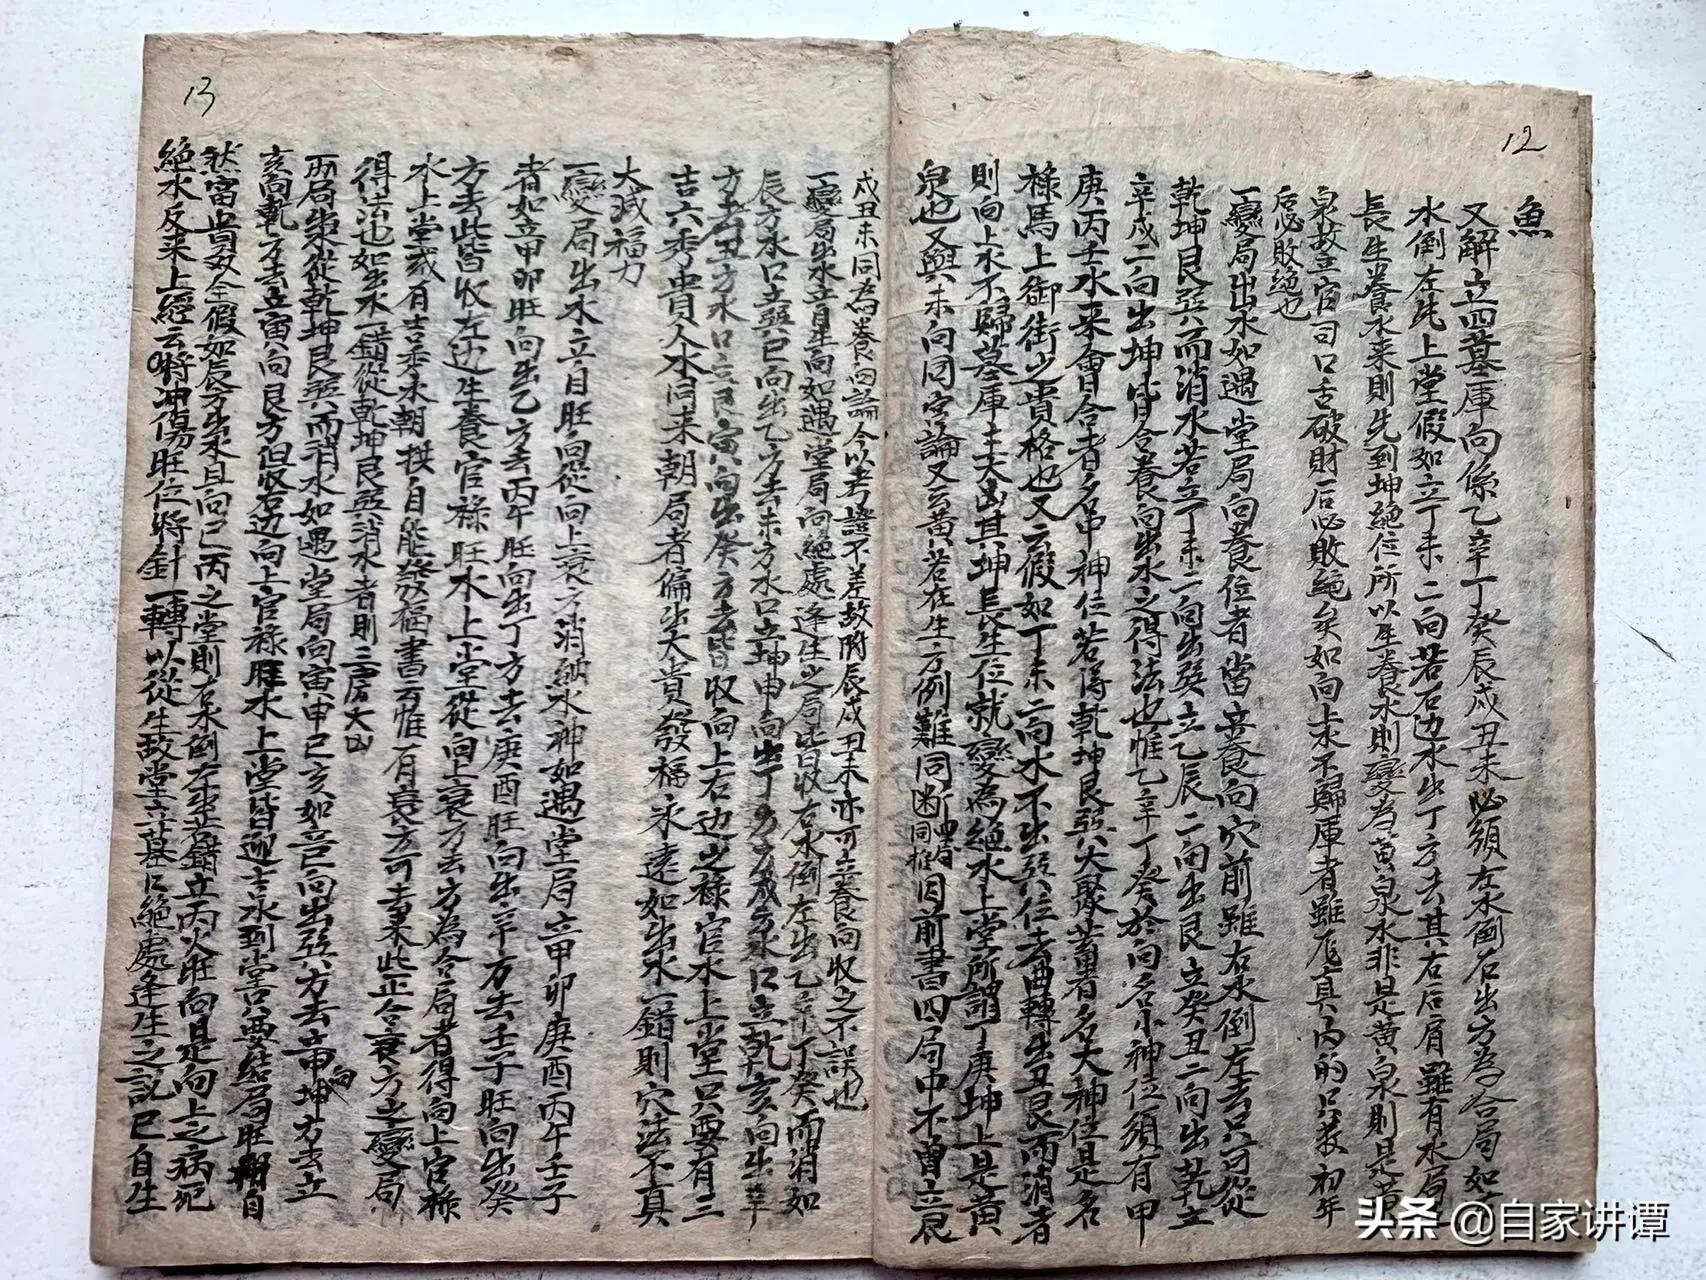 12
魚
又解立四墓庫向係乙辛丁癸辰戌丑未必須左水倒右出方為合局如右
水倒左先上堂假如立丁未二向若右边水出丁方去其右后肩雖有水局
長生養水来則先到坤絶位所以生養水則變為黃泉水非是黃泉則是黃
泉故立官司口舌破財后必敗絶矣如向上水不歸庫者雖応真内的只發初年
后必敗絶也
一變局出水如遇堂局向養位者當立養向穴前雖右水倒左去只可從
乾坤艮巽而消水若立丁未二向出巽立乙辰二向出艮立癸丑二向出乾立
辛戌二向出坤皆合養向出水之得法也惟乙辛丁癸於向名小神位須有甲
庚丙壬水来會合者名中神位若得乾坤艮巽大聚蓄者名大神位是名
禄馬上御街之貴格也又云假如丁未二向水不出巽位去曲轉出丑艮而消者
則向上水不歸墓庫主大凶其坤長生位就變為絶水上堂所謂丁庚坤上是黃
泉也又與未向同字論又云黃若在生方例難同断同推因前書四局中不曾立辰
13
戌丑未同為養向論今以考證不差故附辰戌丑未亦可立養向收之不誤也
一變局出水立自生向如遇堂局向絶處逢生之局皆收右水倒左出乙辛丁癸而消如
辰方水口立巽巳向出乙方去未方水口立坤申向出丁方去戌方水口立乾亥向出辛
方去丑方水口立艮寅向出癸方去皆收向上右边之禄官水上堂只要有三
吉六秀貴人水同来朝局者偏出大貴發福永遠如出水一錯則穴法不真
大減福力
一變局出水立自旺向從向上衰方消納水神如遇堂局立甲卯庚酉丙午壬子
者如立甲卯旺向出乙方去丙午旺向出丁方去庚酉旺向出辛方去壬子旺向出癸
方去此皆收左边生養官禄旺水上堂從向上衰方去方為合局者得向上官禄
水上堂或有吉秀水朝拱自能發福書云惟有衰方可去来此正合衰方之變局
得法也如出水一錯從乾坤艮巽消水者則三房大凶
兩局出來從乾坤艮巽而消水如遇堂局向寅申巳亥如立巳向出巽方去申向坤方去立
亥向乾方去立寅向艮方但收右边向上官禄旺水上堂皆迎吉水到堂只要結局旺朝自
然富貴双全假如辰方出水且向巳丙之堂則右水倒左出若錯立丙火旺向且是向上之病死
絶水反来上經云將坤傷旺位將針一轉以從生故堂立墓江絶處逢生之說巳自生
头条 @自家讲谭